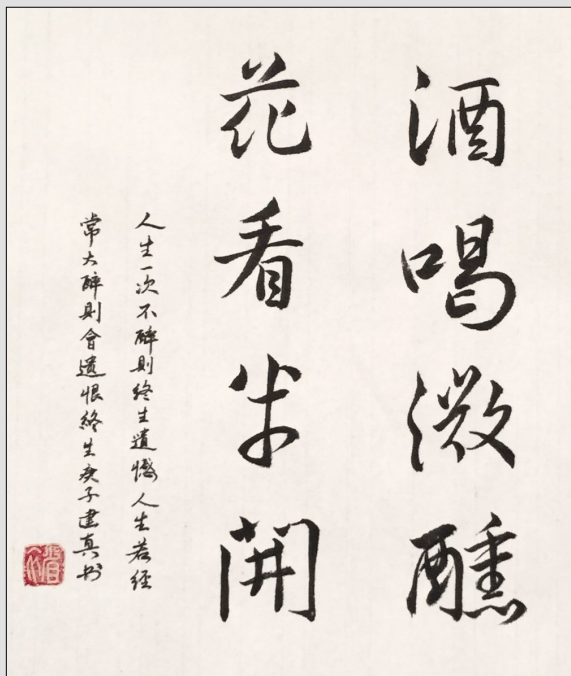 酒喝微醺
花看半開
人生一次不醉則終生遺憾人生若經
常大醉則會遺恨終生庚子建真书